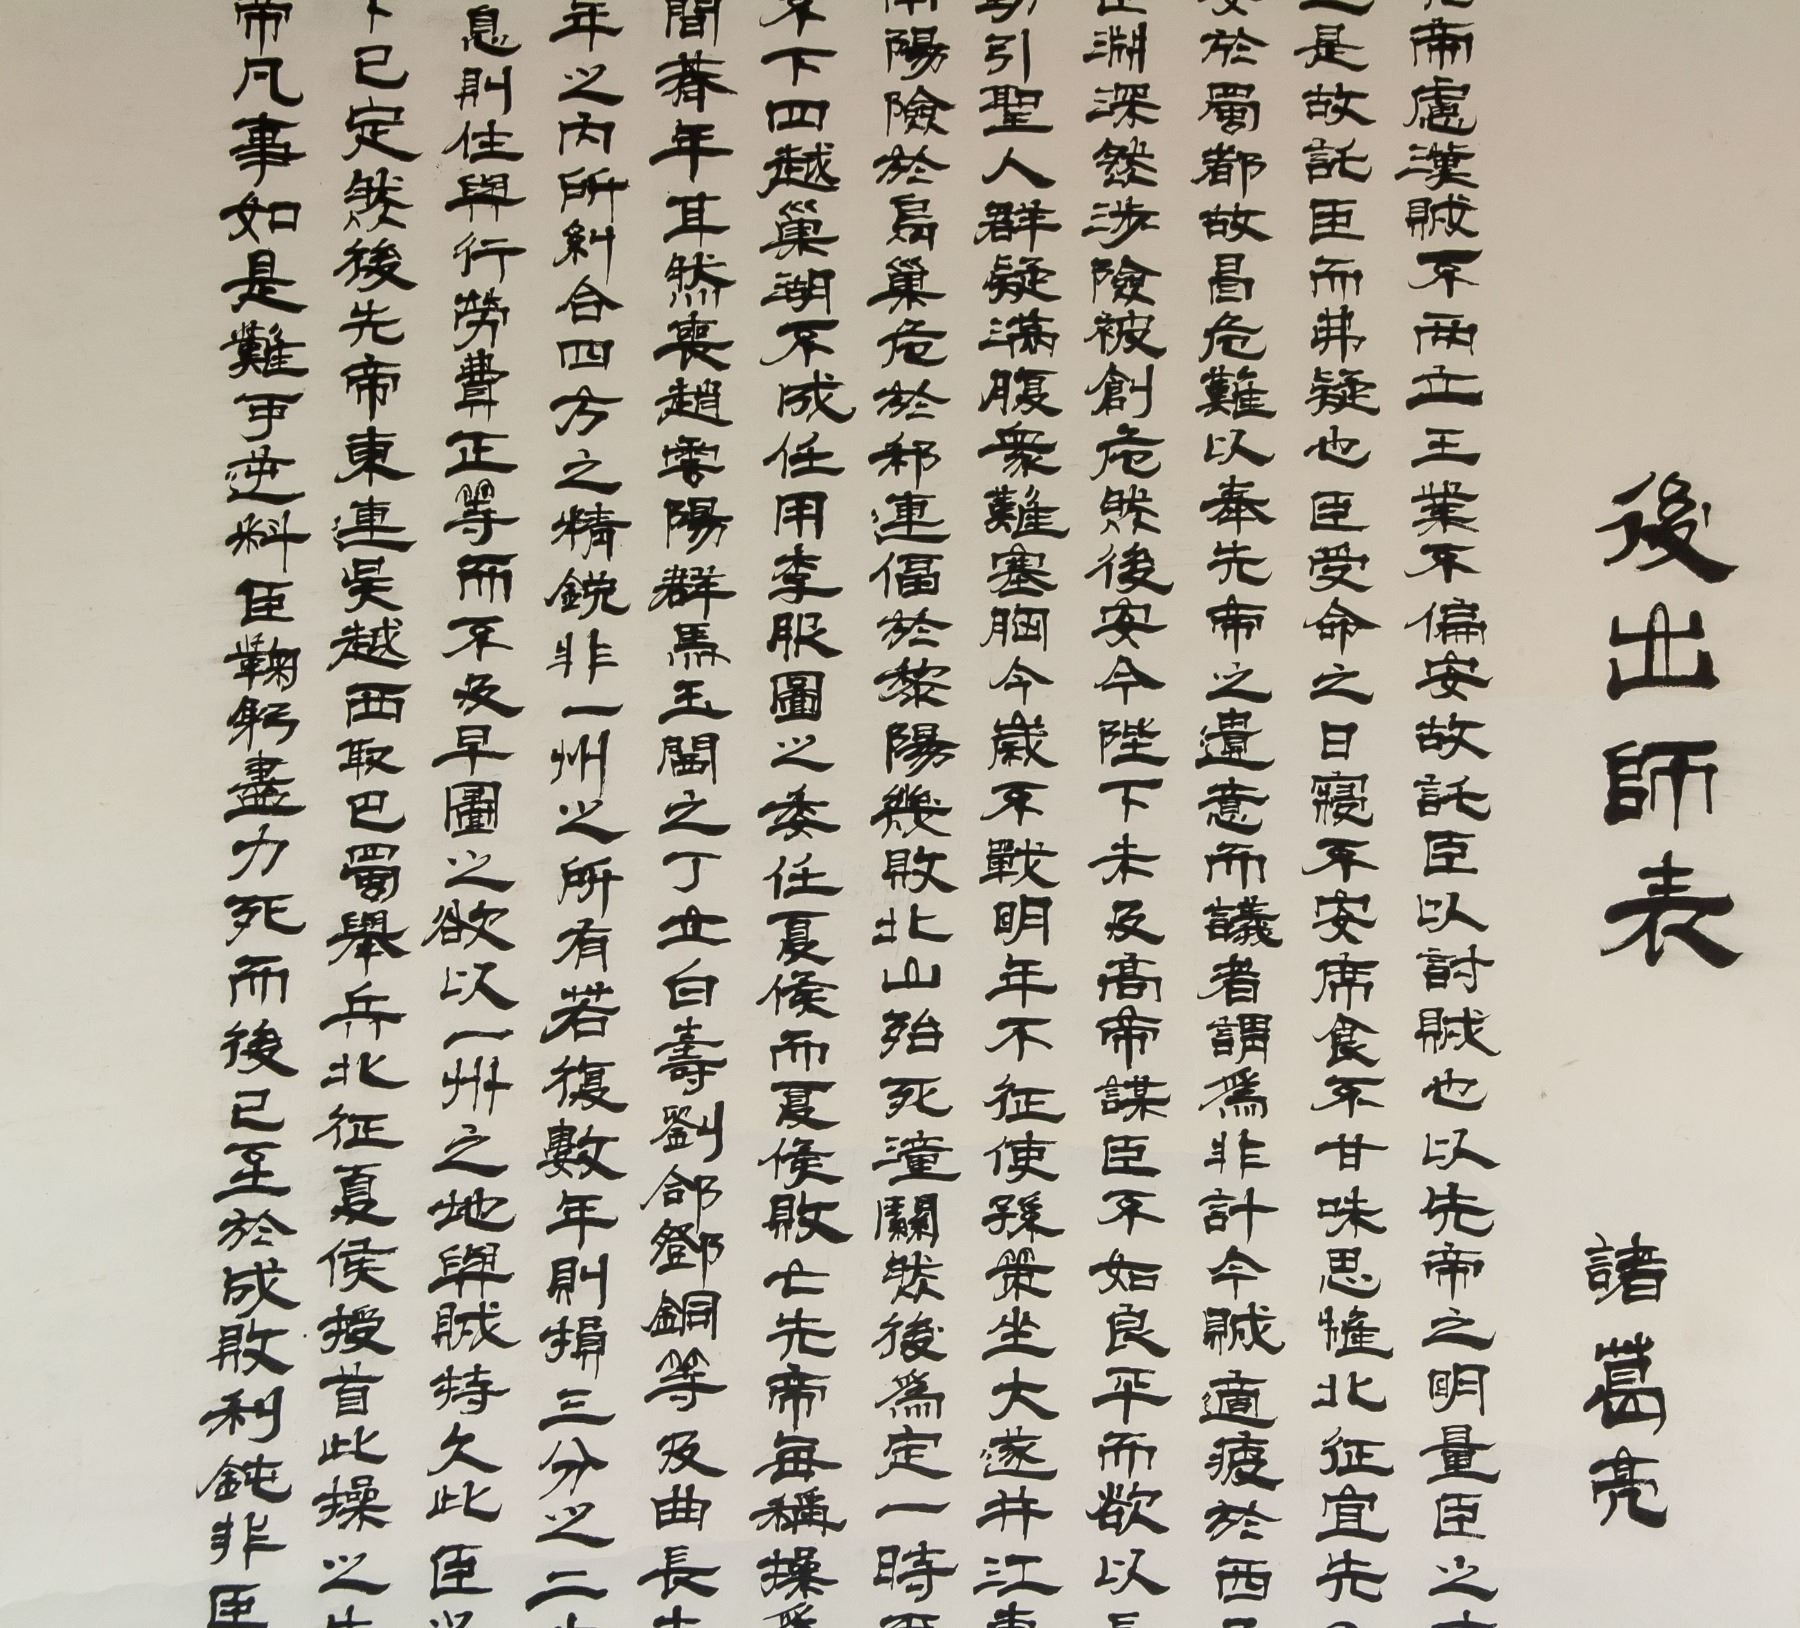 後出師表 諸葛亮
先帝慮漢賊不兩立王業不偏安故託臣以討賊也以先帝之明量臣之
是故託臣而弗疑也臣受命之日寢不安席食不甘味思惟北征宜先
安於蜀都故冒危難以奉先帝之遺意而議者謂爲非計今賊適疲於西
淵深然涉險被創危然後安今陛下未及高帝謀臣不如良平而欲以長
引聖人群疑滿腹衆難塞胸今歲不戰明年不征使孫策坐大遂并江東
南陽險於烏巢危於祁連偪於黎陽幾敗北山殆死潼關然後爲定一時
不下四越巢湖不成任用李服圖之委任夏侯而夏侯敗亡先帝每稱操爲
間朞年耳然喪趙雲陽群馬玉閻芝丁立白壽劉郃鄧銅等及曲長
年之內所糾合四方之精銳非一州之所有若復數年則損三分之二
息則住與行勞費正等而不及早圖之欲以一州之地與賊持久此臣
下已定然後先帝東連吳越西取巴蜀舉兵北征夏侯授首此操之失
帝凡事如是難可逆料臣鞠躬盡力死而後已至於成敗利鈍非臣